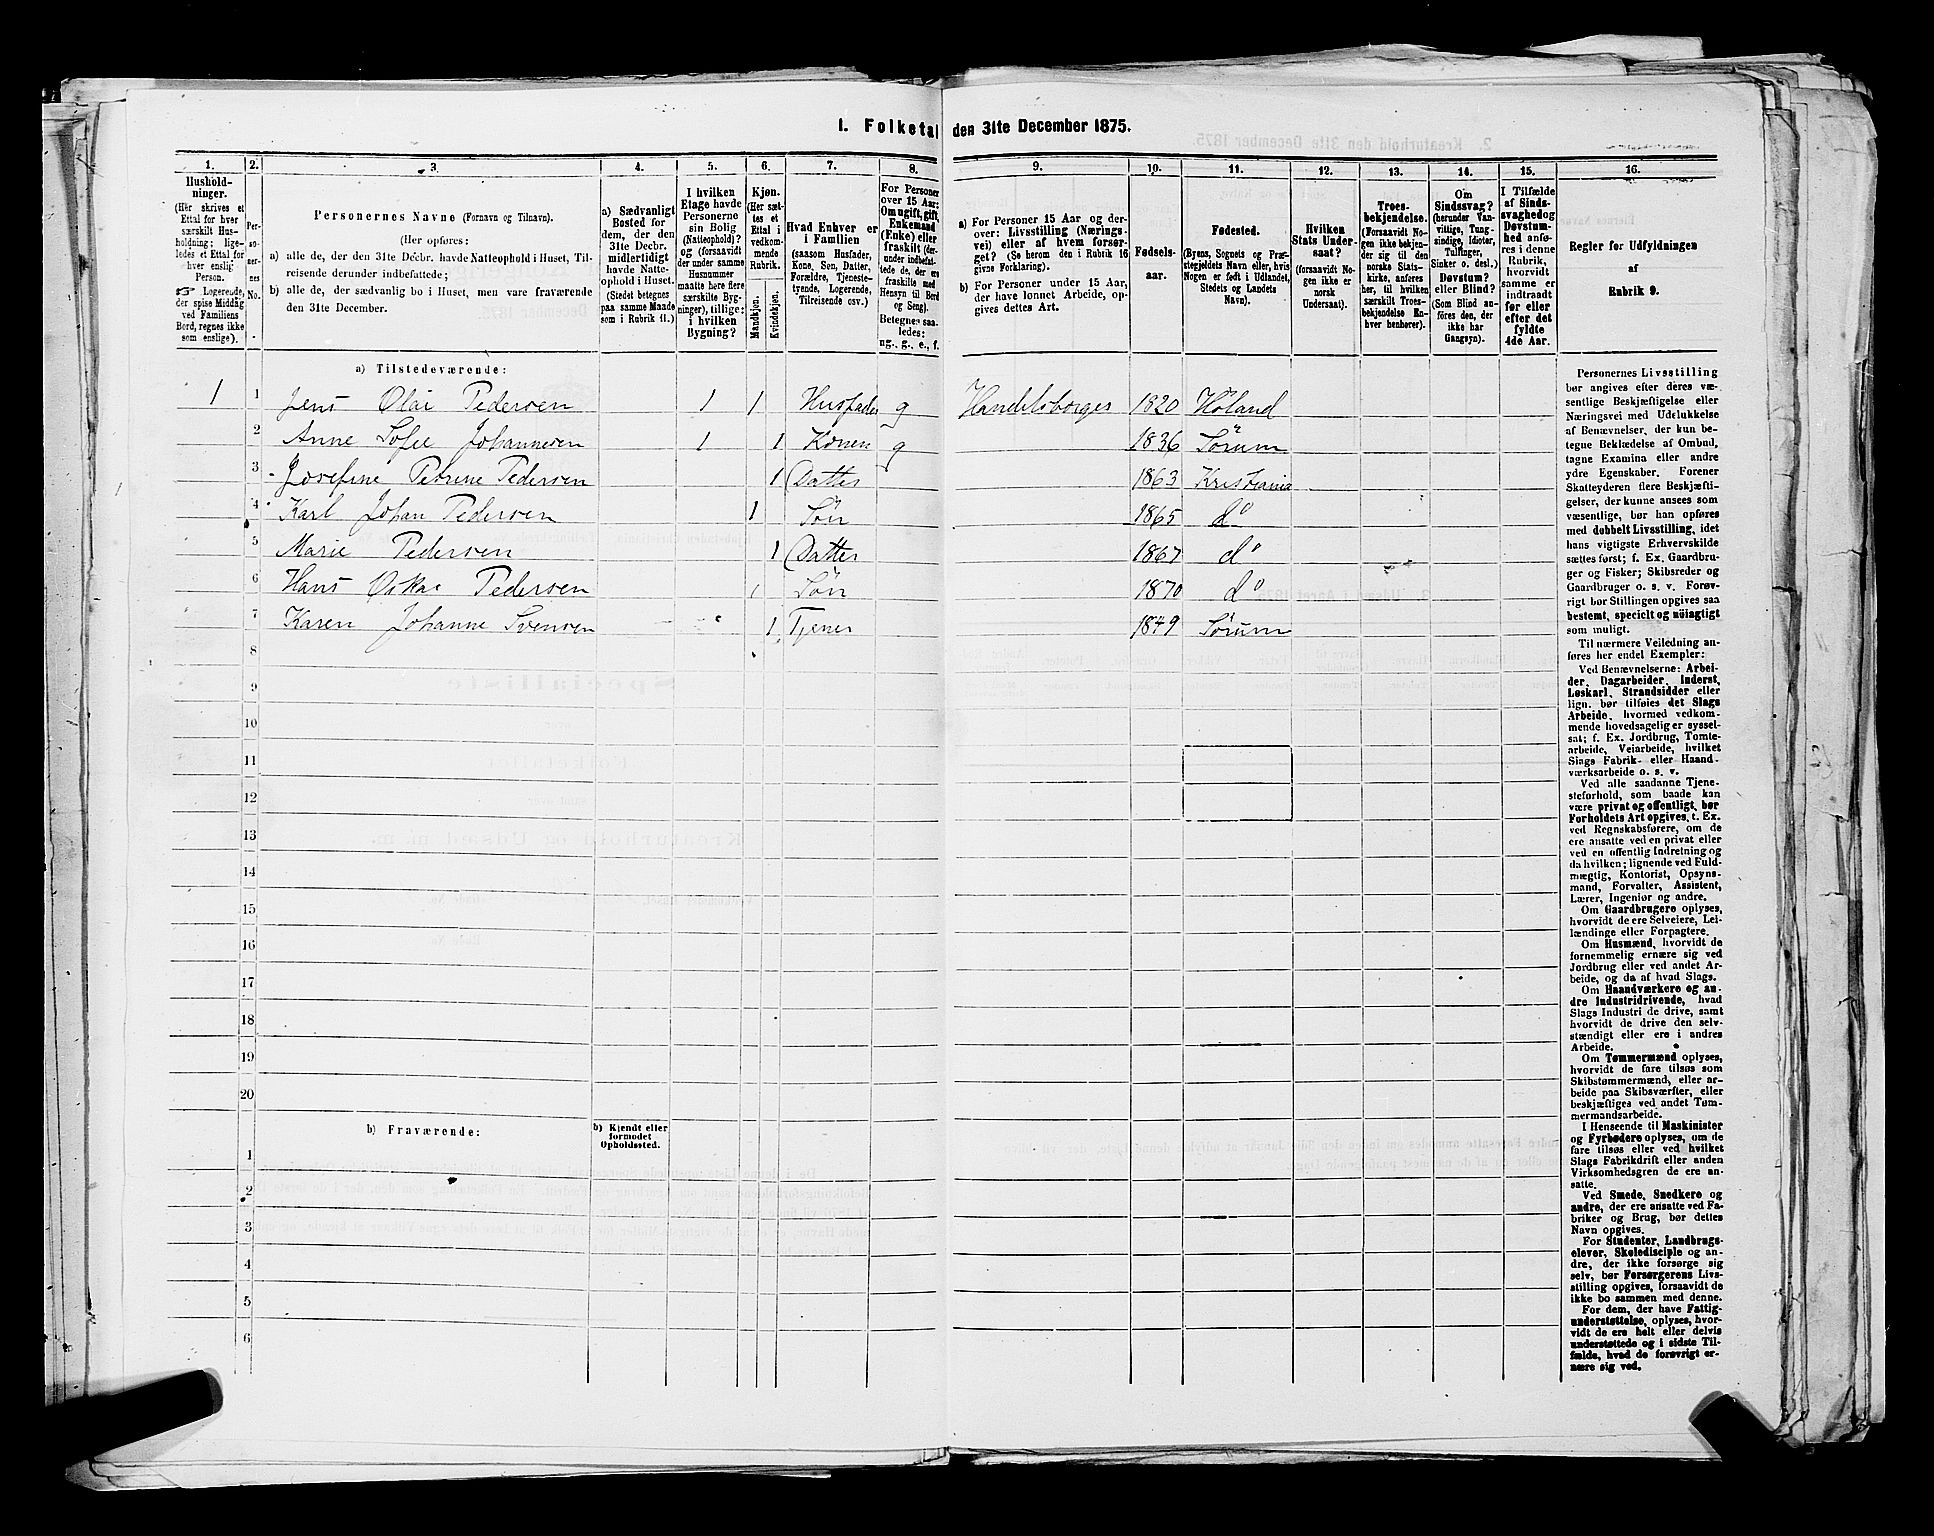 1. Folketal den 31te December 1875.
1. 2. 3. 4. 5. 6. 7. 8. 9. 10. 11. 12. 13. 14. 15. 16.
Hushold-
ninger.
(Her skrives et
Ettal for hver
særskilt Hus-
holdning; lige-
ledes et Ettal for
hver enslig
Person.
☞ Logerende,
der spise Middag
ved Familiens
Bord, regnes ikke
som enslige).
Per-
so-
ner-
nes
No.
Personernes Navne (Fornavn og Tilnavn).
(Her opføres:
a) alle de, der den 31te Decbr. havde Natteophold i Huset, Til-
reisende derunder indbefattede;
b) alle de, der sædvanlig bo i Huset, men vare fraværende
den 31te December.
a) Sædvanligt
Bosted for
dem, der den
31te Decbr.
midlertidigt
havde Natte-
ophold i Huset.
(Stedet betegnes
paa samme Maade
som i Rubrik 11.)
I hvilken
Etage havde
Personerne
sin Bolig
(Natteophold)?
og (forsaavidt
der under samme
Husnummer
maatte høre flere
særskilte Byg-
ninger), tillige:
i hvilken
Bygning?
Kjøn.
(Her sæt-
tes et
Ettal i
vedkom-
mende
Rubrik.
Mandkjøn.
Kvindekjøn.
Hvad Enhver er
i Familien
(saasom Husfader,
Kone, Søn, Datter,
Forældre, Tjeneste-
tyende, Logerende,
Tilreisende osv.)
For Personer
over 15 Aar:
Om ugift, gift,
Enkemand
(Enke) eller
fraskilt (der-
under indbefat-
tede de, der ere
fraskilte med
Hensyn til Bord
og Seng).
Betegnes saa-
ledes:
ug., g., e., f.
a) For Personer 15 Aar og der-
over: Livsstilling (Nærings-
vei) eller af hvem forsør-
get? (Se herom den i Rubrik 16
givne Forklaring).
b) For Personer under 15 Aar,
der have lønnet Arbeide, op-
gives dettes Art.
Fødsels-
aar.
Fødested.
(Byens, Sognets og Præ-
stegjeldets Navn eller, hvis
Nogen er født i Udlandet,
Stedets og Landets
Navn).
Hvilken
Stats Under-
saat?
(forsaavidt No-
gen ikke er
norsk
Undersaat).
Troes-
bekjendelse.
(Forsaavidt No-
gen ikke bekjen-
der sig til den
norske Stats-
kirke, anføres
her, til hvilken
særskilt Troes-
bekjendelse En-
hver henhører).
Om
Sindssvag?
(herunder Van-
vittige, Tung-
sindige, Idioter,
Tulfinger,
Sinker o. desl.)
Døvstum?
eller Blind?
(Som Blind an-
føres den, der
ikke har
Gangsyn).
I Tilfælde
af Sinds-
svaghed og
Døvstum-
hed anfø-
res i denne
Rubrik,
hvorvidt
samme er
indtraadt
før eller
efter det
fyldte
4de Aar.
Regler før Udfyldningen
af
Rubrik 9.
a) Tilstedeværende:
1 1 Jens Olai Pedersen 1 1 Husfader g Handelsborger 1820 Høland
2 Anne Sofie Johannesen 1 1 Konen g 1836 Sørum
3 Josefine Petrine Pedersen 1 Datter 1863 Kristiania
4 Karl Johan Pedersen 1 Søn 1865 do
5 Marie Pedersen 1 Datter 1867 do
6 Hans Oskar Pedersen 1 Søn 1870 do
7 Karen Johanne Svensen 1 Tjener 1849 Sørum
8
9
10
11
12
13
14
15
16
17
18
19
20
b) Fraværende:
b) Kjendt eller
formodet
Opholdssted.
1
2
3
4
5
6
Personernes Livsstilling
bør angives efter deres væ-
sentlige Beskjæftigelse eller
Næringsvei med Udelukkelse
af Benævnelser, der kun be-
tegne Beklædelse af Ombud,
tagne Examina eller andre
ydre Egenskaber. Forener
Skatteyderen flere Beskjæfti-
gelser, der kunne ansees som
væsentlige, bør han opføres
med dobbelt Livsstilling, idet
hans vigtigste Erhvervskilde
sættes først; f. Ex. Gaardbru-
ger og Fisker; Skibsreder og
Gaardbruger o. s. v. Forøv-
rigt bør Stillingen opgives saa
bestemt, specielt og nøiagtigt
som muligt.
Til nærmere Veiledning an-
føres her endel Exempler:
Ved Benævnelserne: Arbei-
der, Dagarbeider, Inderst,
Løskarl, Strandsidder eller
lign. bør tilføies det Slags
Arbeide, hvormed vedkom-
mende hovedsagelig er syssel-
sat; f. Ex. Jordbrug, Tomte-
arbeide, Veiarbeide, hvilket
Slags Fabrik- eller Haand-
værksarbeide o. s. v.
Ved alle saadanne Tjene-
steforhold, som baade kan
være privat og offentligt, bør
Forholdets Art opgives, t. Ex.
ved Regnskabsførere, om de
ere ansatte ved en privat eller
ved en offentlig Indretning og
da hvilken; lignende ved Fuld-
mægtig, Kontorist, Opsyns-
mand, Forvalter, Assistent,
Lærer, Ingeniør og andre.
Om Gaardbrugere oplyses,
hvorvidt de ere Selveiere, Lei-
lændinge eller Forpagtere.
Om Husmænd, hvorvidt de
fornemmelig ernære sig ved
Jordbrug eller ved andet Ar-
beide, og da af hvad Slags.
Om Haandværkere og an-
dre Industridrivende, hvad
Slags Industri de drive, samt
hvorvidt de drive den selv-
stændigt eller ere i andres
Arbeide.
Om Tømmermænd oplyses,
hvorvidt de fare tilsøs som
Skibstømmermænd, eller ar-
beide paa Skibsværfter, eller
beskjæftiges ved andet Tøm-
mermandsarbeide.
I Henseende til Maskinister
og Fyrbødere oplyses, om de
fare tilsøs eller ved hvilket
Slags Fabrikdrift eller anden
Virksomhedsgren de ere an-
satte.
Ved Smede, Snedkere og
andre, der ere ansatte ved Fa-
briker og Brug, bør dettes
Navn opgives.
For Studenter, Landbrugs-
elever, Skoledisciple og an-
dre, der ikke forsørge sig
selv, bør Forsørgerens Livs-
stilling opgives, forsaavidt de
ikke bo sammen med denne.
For dem, der have Fattig-
understøttelse, oplyses, hvor-
vidt de ere helt eller delvis
understøttede og i sidste Til-
fælde, hvad de forøvrigt er-
nære sig ved.